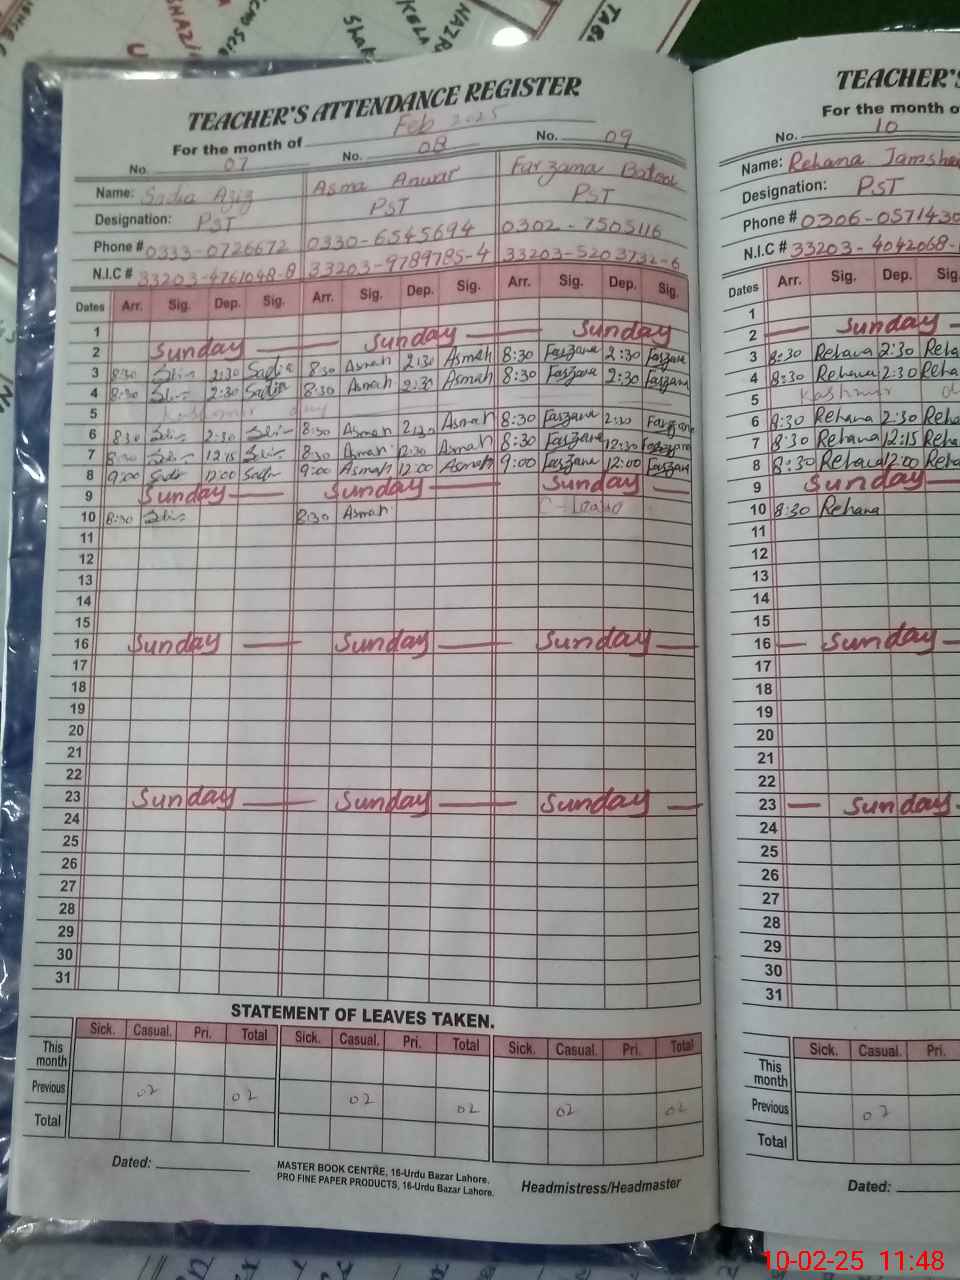 TEACHER'S ATTENDANCE REGISTER
For the month of Feb 2025
No. 07 No. 08 No. 09
Name: Sadia Aziz Asma Anwar Farzana Batool
Designation: PST PST PST
Phone # 0333-0726672 0330-6545694 0302-7505116
N.I.C # 33203-4761048-8 33203-9789785-4 33203-5203732-6
Dates Arr. Sig. Dep. Sig. Arr. Sig. Dep. Sig. Arr. Sig. Dep. Sig.
1
2 Sunday Sunday Sunday
3 8:30 2:30 Sadia 8:30 Asmah 2:30 Asmah 8:30 Farzana 2:30 Farzana
4 8:30 2:30 Sadia 8:30 Asmah 2:30 Asmah 8:30 Farzana 2:30 Farzana
5 Kashmir day
6 8:30 2:30 8:30 Asmah 2:30 Asmah 8:30 Farzana 2:30 Farzana
7 8:30 12:15 8:30 Asmah 12:30 Asmah 8:30 Farzana 12:30 Farzana
8 9:00 Sadia 12:00 Sadia 9:00 Asmah 12:00 Asmah 9:00 Farzana 12:00 Farzana
9 Sunday Sunday Sunday
10 8:30 8:30 Asmah C-leave
11
12
13
14
15
16 Sunday Sunday Sunday
17
18
19
20
21
22
23 Sunday Sunday Sunday
24
25
26
27
28
29
30
31
STATEMENT OF LEAVES TAKEN.
Sick. Casual. Pri. Total Sick. Casual. Pri. Total Sick. Casual. Pri. Total
This month
Previous 02 02 02 02 02 02
Total
Dated:
MASTER BOOK CENTRE, 16-Urdu Bazar Lahore.
PRO FINE PAPER PRODUCTS, 16-Urdu Bazar Lahore.
Headmistress/Headmaster
TEACHER'S
For the month
No. 10
Name: Rehana Jamshe
Designation: PST
Phone # 0306-0571430
N.I.C # 33203-4042068-
Dates Arr. Sig. Dep. Sig.
1
2 Sunday
3 8:30 Rehana 2:30 Reha
4 8:30 Rehana 2:30 Reha
5 Kashmir
6 8:30 Rehana 2:30 Reha
7 8:30 Rehana 12:15 Reha
8 8:30 Rehana 12:00 Reha
9 Sunday
10 8:30 Rehana
11
12
13
14
15
16 Sunday
17
18
19
20
21
22
23 Sunday
24
25
26
27
28
29
30
31
Sick. Casual. Pri.
This month
Previous 02
Total
Dated:
10-02-25 11:48